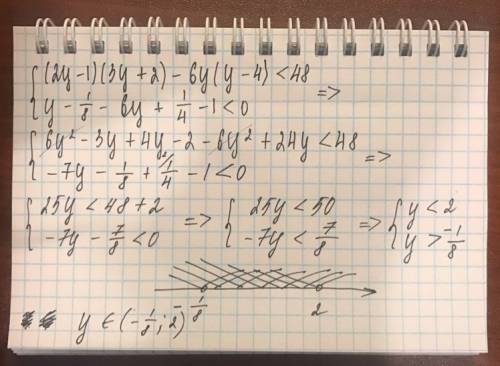 {(2y-1)(3y+2)-6y(y-4)<48
{y-1/8-6y+1/4-1<0 =>
{6y²-3y+4y-2-6y²+24y<48
{-7y-1/8+1/4-1<0 =>
{25y<48+2 => {25y<50 => {y<2
{-7y-7/8<0 {-7y<7/8 {y>-1/8
-1/8 2
y ∈ (-1/8; 2)